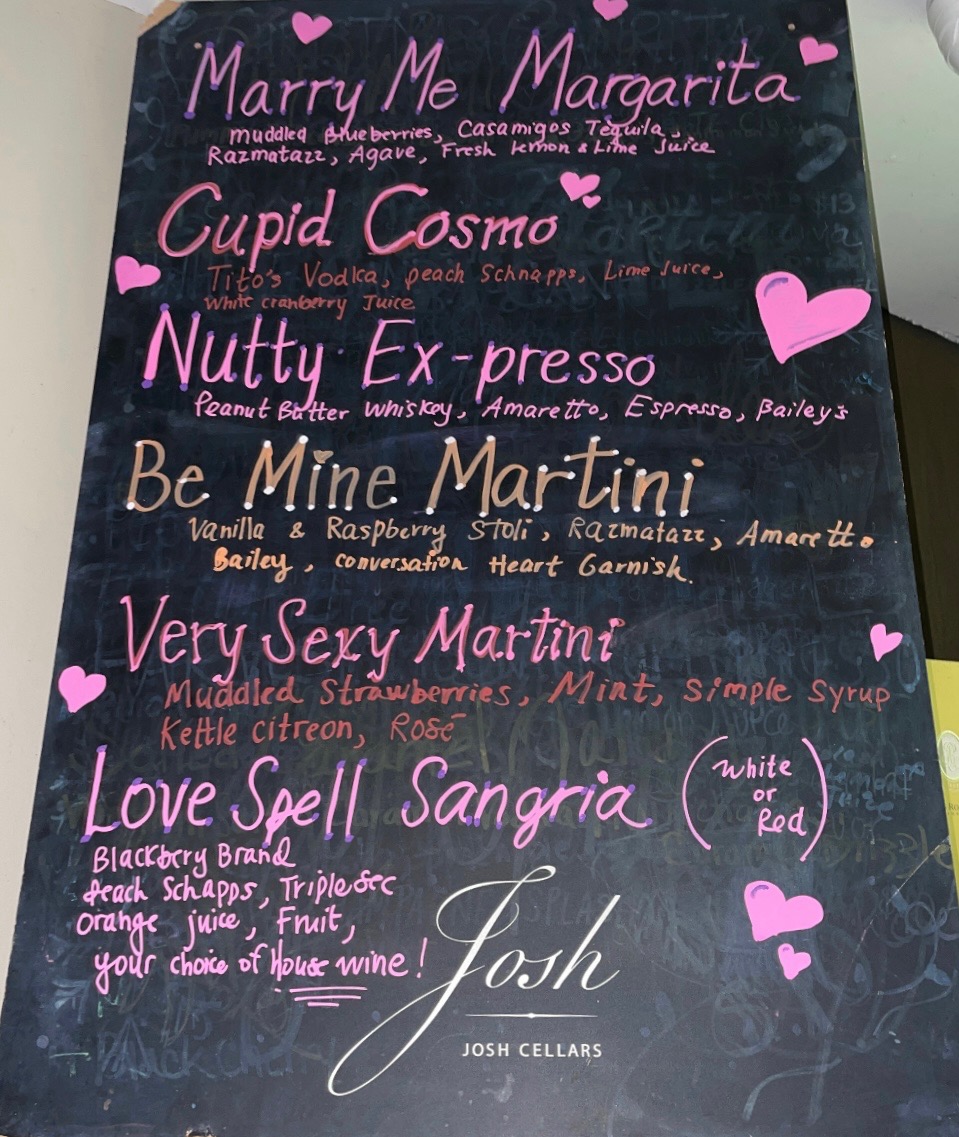 Marry Me Margarita
Muddled Blueberries, Casamigos Tequila,
Razmatazz, Agave, Fresh Lemon & Lime Juice
Cupid Cosmo
Tito's Vodka, peach Schnapps, Lime Juice,
White cranberry Juice
Nutty Ex-presso
Peanut Butter Whiskey, Amaretto, Espresso, Bailey's
Be Mine Martini
Vanilla & Raspberry Stoli, Razmatazz, Amaretto
Bailey, conversation Heart Garnish.
Very Sexy Martini
Muddled Strawberries, Mint, Simple Syrup
Kettle citreon, Rosé
Love Spell Sangria (White or Red)
Blackbery Brand
Peach Schapps, Triplesec
orange juice, Fruit,
your choice of House wine!
Josh
JOSH CELLARS